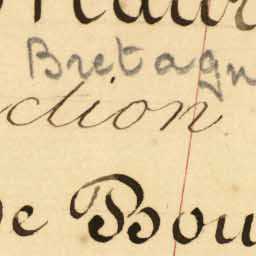 Bretagn
dion
e Bou